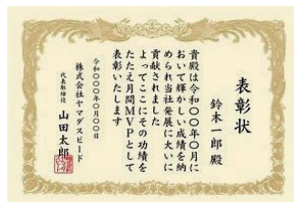 表彰状
鈴木一郎殿
貴殿は令和〇〇〇年〇月に
おいて輝かしい成績を納
められ当社発展に大いに
貢献されました
よってここにその功績を
たたえ月間MVPとして
表彰いたします
令和〇〇〇年〇月〇〇日
株式会社ヤマダスピード
代表取締役
山田太郎